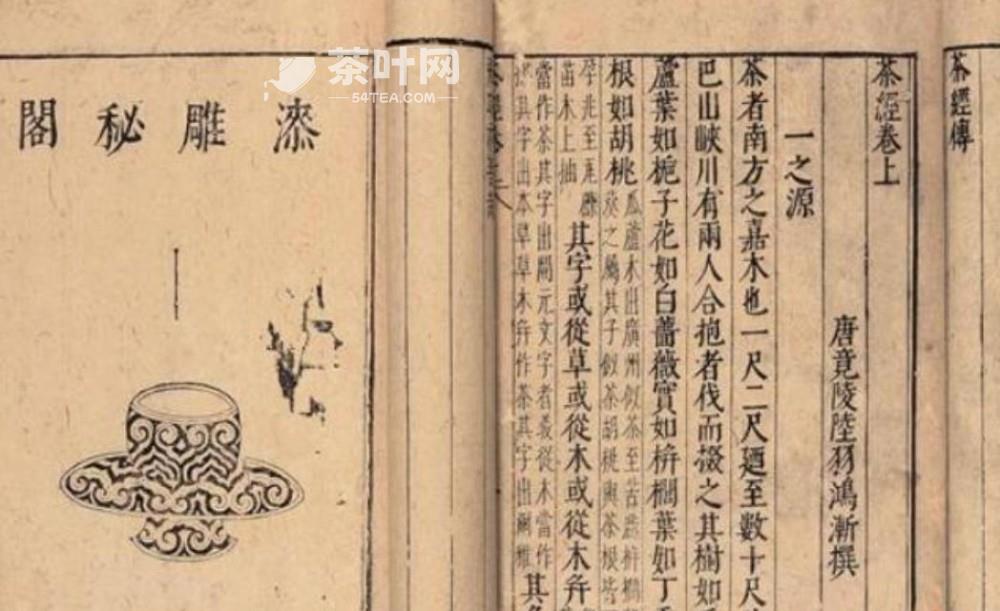 茶叶网
54TEA.COM
茶經傳
茶經卷上
唐竟陵陸羽鴻漸撰
一之源
茶者南方之嘉木也一尺二尺廼至數十尺
巴山峽川有兩人合抱者伐而掇之其樹如
蘆葉如梔子花如白薔薇實如栟櫚葉如丁
根如胡桃瓜蘆木出廣州似茶至苦澁栟櫚
葵之屬其子似茶胡桃與茶根皆
孕兆至瓦礫
苗木上抽其字或從草或從木或從木并
當作茶其字出開元文字者義從木當作
其字出本草草木并作茶其字出爾雅其名
漆雕秘閣